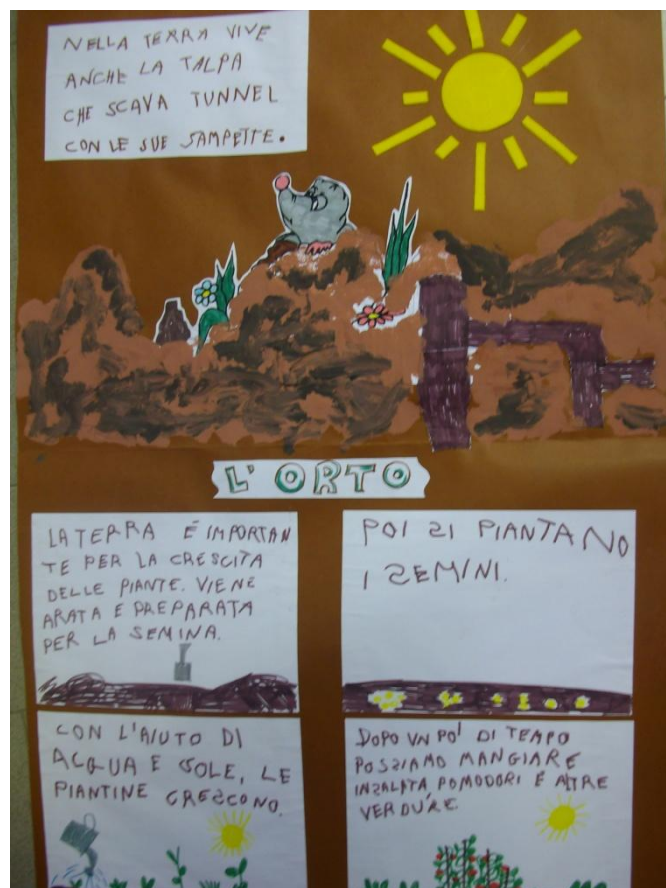 NELLA TERRA VIVE
ANCHE LA TALPA
CHE SCAVA TUNNEL
CON LE SUE SAMPETTE.
L'ORTO
LA TERRA É IMPORTAN
TE PER LA CRESCITA
DELLE PIANTE. VIENE
ARATA E PREPARATA
PER LA SEMINA.
POI SI PIANTANO
I SEMINI.
CON L'AIUTO DI
ACQUA E SOLE, LE
PIANTINE CRESCONO.
DOPO UN PO' DI TEMPO
POSSIAMO MANGIARE
INSALATA, POMODORI E ALTRE
VERDURE.